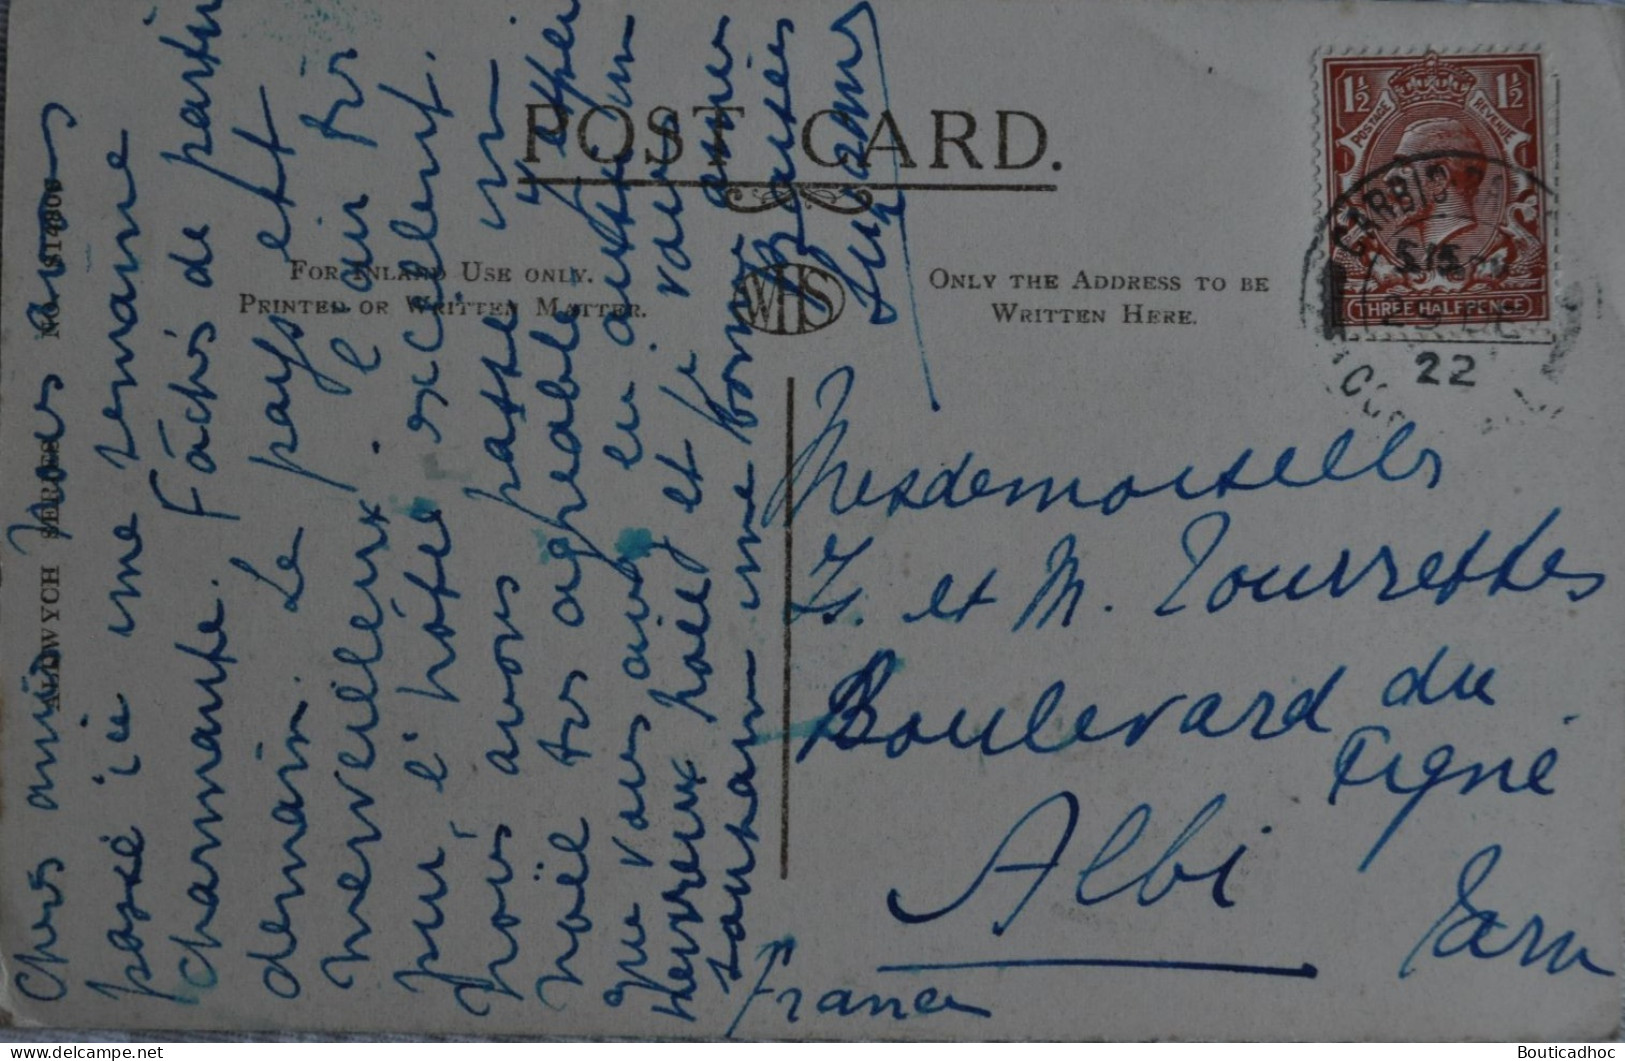 POST CARD.
FOR INLAND USE ONLY.
PRINTED OR WRITTEN MATTER.
WHS
ONLY THE ADDRESS TO BE
WRITTEN HERE.
ALDWYCH SERIES
No. S14806
1½ 1½
POSTAGE REVENUE
THREE HALFPENCE
CARBIS BA
22
Chers amis nous avons
passé ici une semaine
charmante. Fâchés de partir
demain. Le pays est
merveilleux. l'air très
pur, l'hôtel excellent.
Nous avons passé un
Noël très agréable. J'espère
que vous avez eu aussi un
heureux Noël et je vous
souhaite une bonne année
Baisers
Suzanne
Mesdemoiselles
Is. et M. Tourrettes
Boulevard du
Albi
Tarn
France
Bouticadhoc